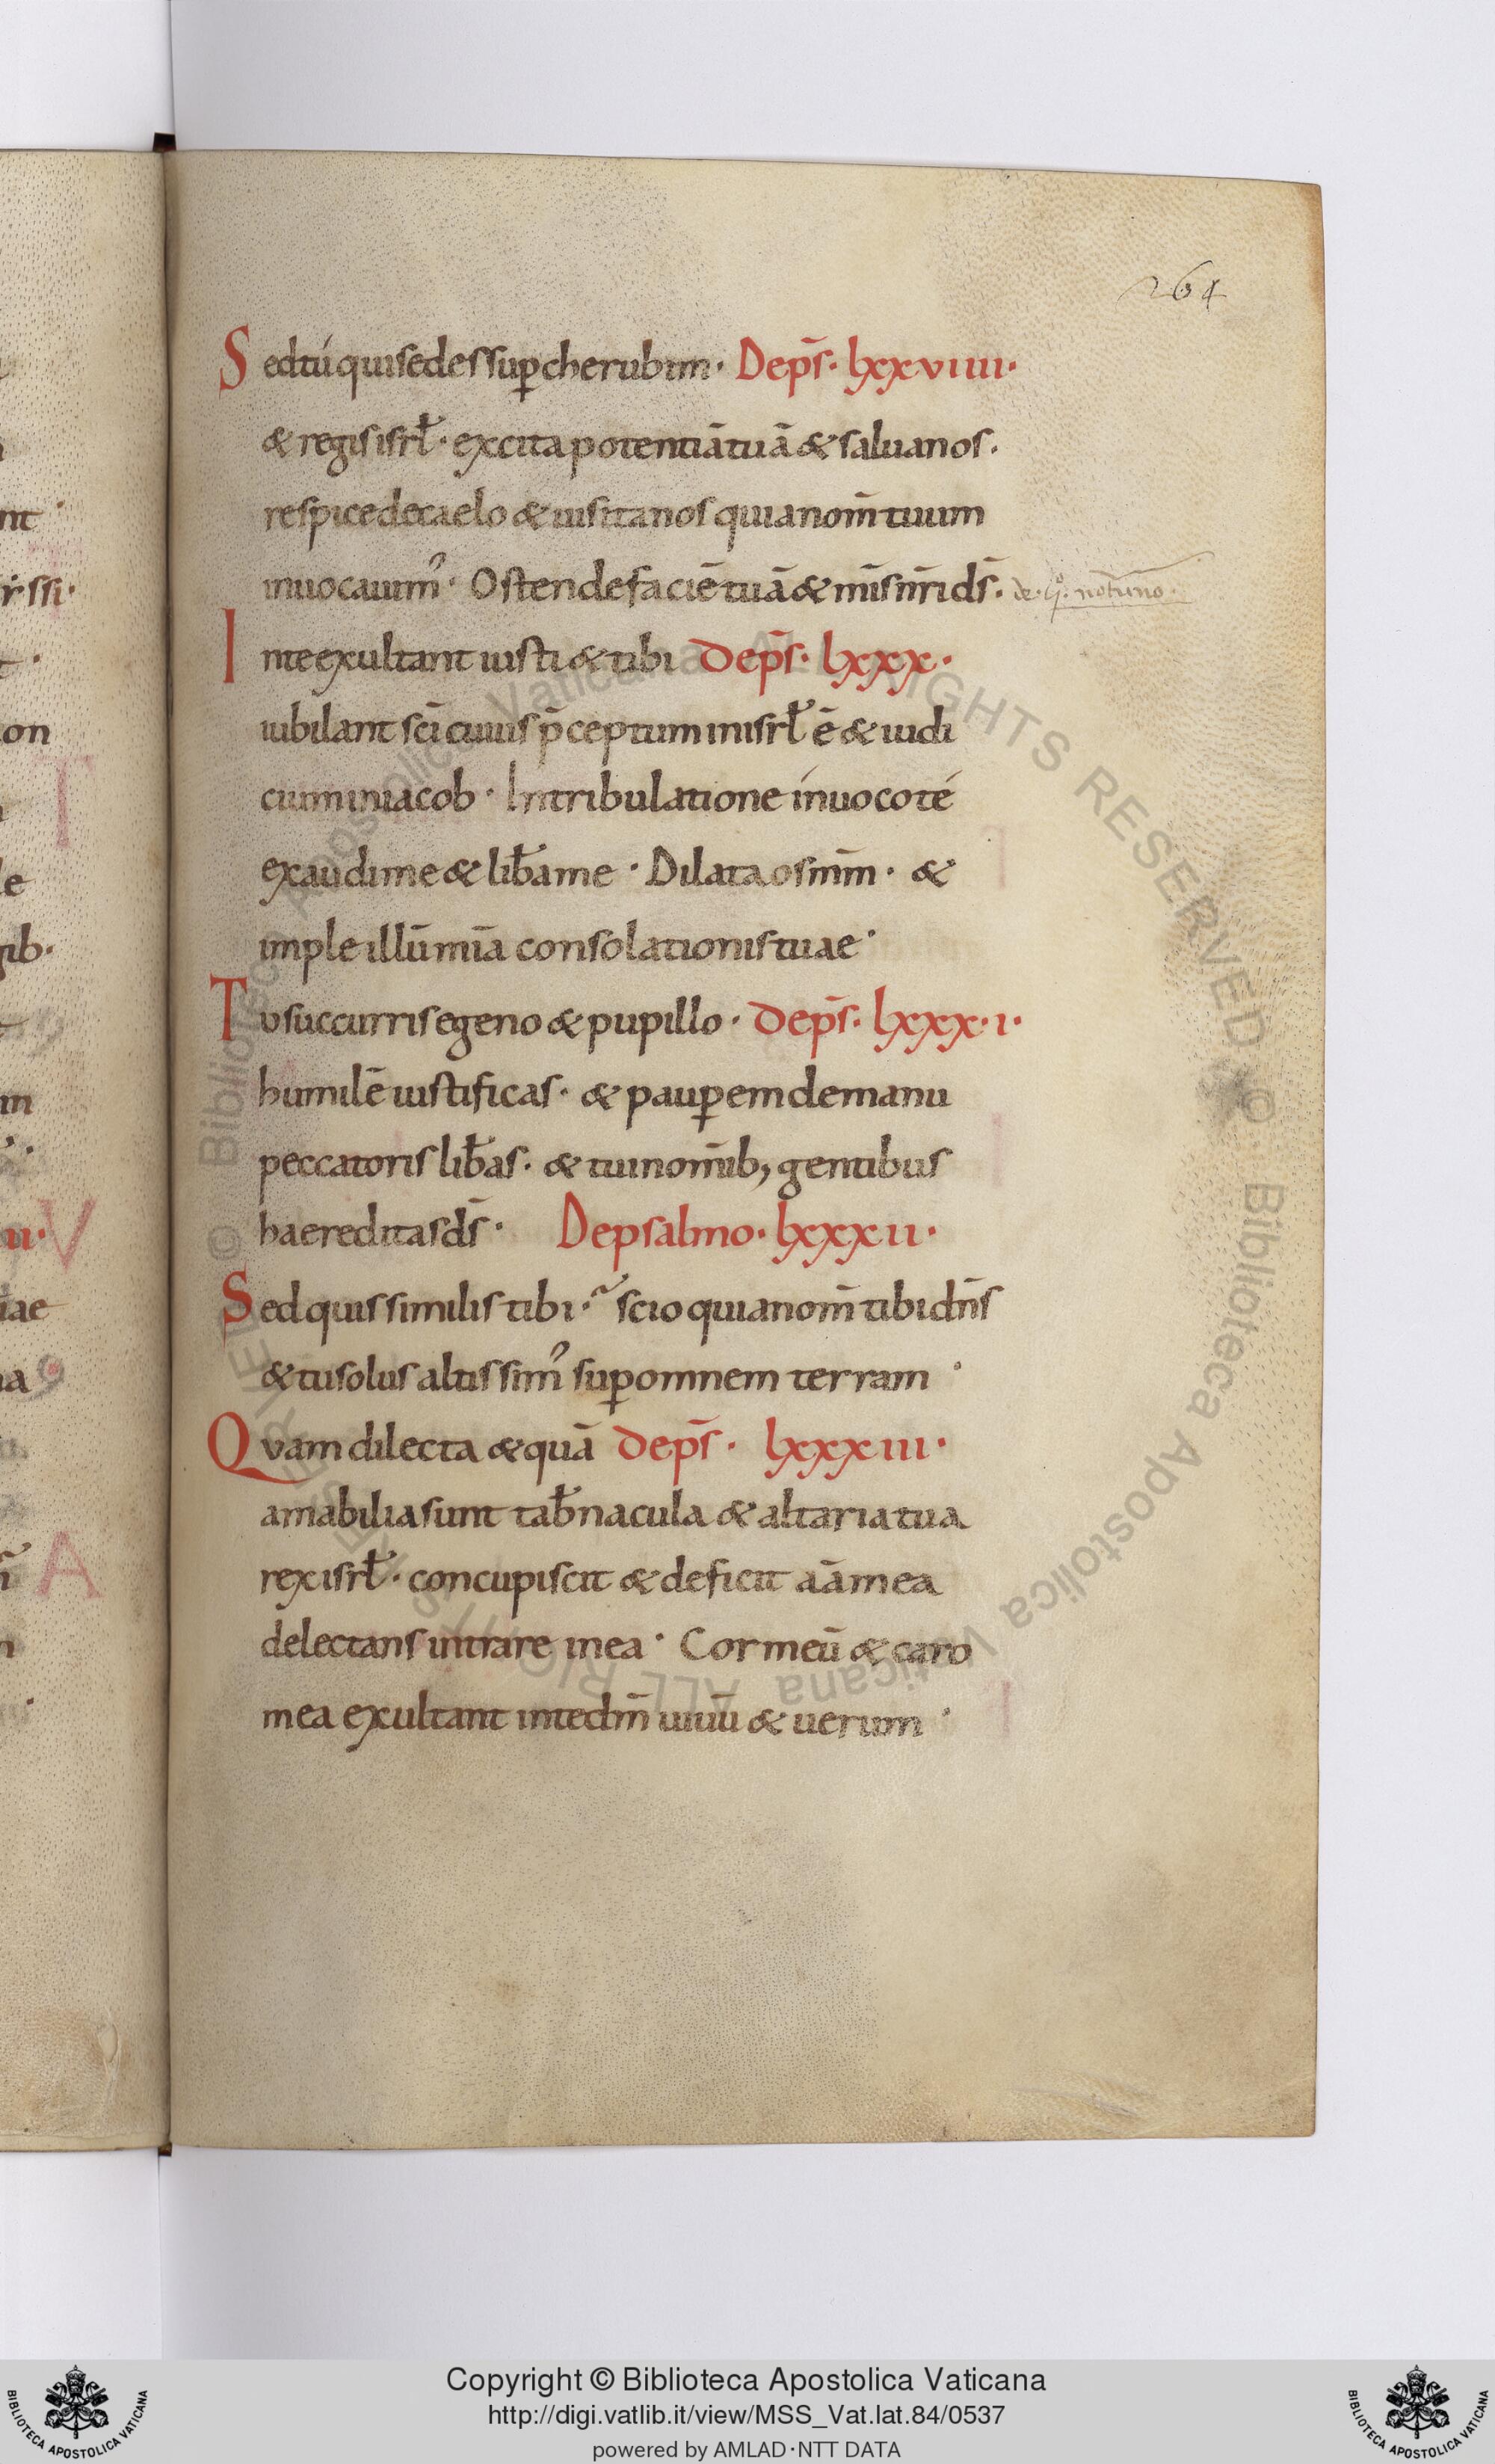 264
Sed tú qui sedes sup̄ cherubim· De ps̄· lxxviiii·
& regis isrł· excita potentiā tuā & salua nos·
respice de caelo & uisita nos quia nom̄ tuum
inuocauim᾽· Ostende faciē tuā & mīs nr̄i ds̄·
In te exultant iusti & tibi De ps̄· lxxx·
iubilant sc̄i cuius p̄ceptum in isrł ē & iudi
cium in iacob· In tribulatione ínuoco té
exaudi me & lib̄a me· Dilata os mm̄· &
imple illū mīa consolationis tuae·
Tu succurris egeno & pupillo· De ps̄· lxxx·i·
humilē iustificas· & paup̄em de manu
peccatoris lib̄as· & tui nom̄ib; gentibus
haereditas ds̄· De psalmo· lxxxii·
Sed quis similis tibi·~ scio quia nom̄ tibi dn̄s
& tu solus altissim᾽ sup̄ omnem terram·
Quam dilecta & quā De ps̄· lxxxiii·
amabilia sunt tab̄nacula & altaria tua
rex isrł· concupiscit & deficit aā mea
delectans intrare in ea· Cor meū & caro
mea exultant in te dm̄ uiuū & uerum·
nt·
on
e
ib·
m
u· V
iae
a
A
© Biblioteca Apostolica Vaticana ALL RIGHTS RESERVED © Biblioteca Apostolica Vaticana ALL RIGHTS RESERVED
BIBLIOTECA APOSTOLICA VATICANA
Copyright © Biblioteca Apostolica Vaticana
http://digi.vatlib.it/view/MSS_Vat.lat.84/0537
powered by AMLAD·NTT DATA
BIBLIOTECA APOSTOLICA VATICANA